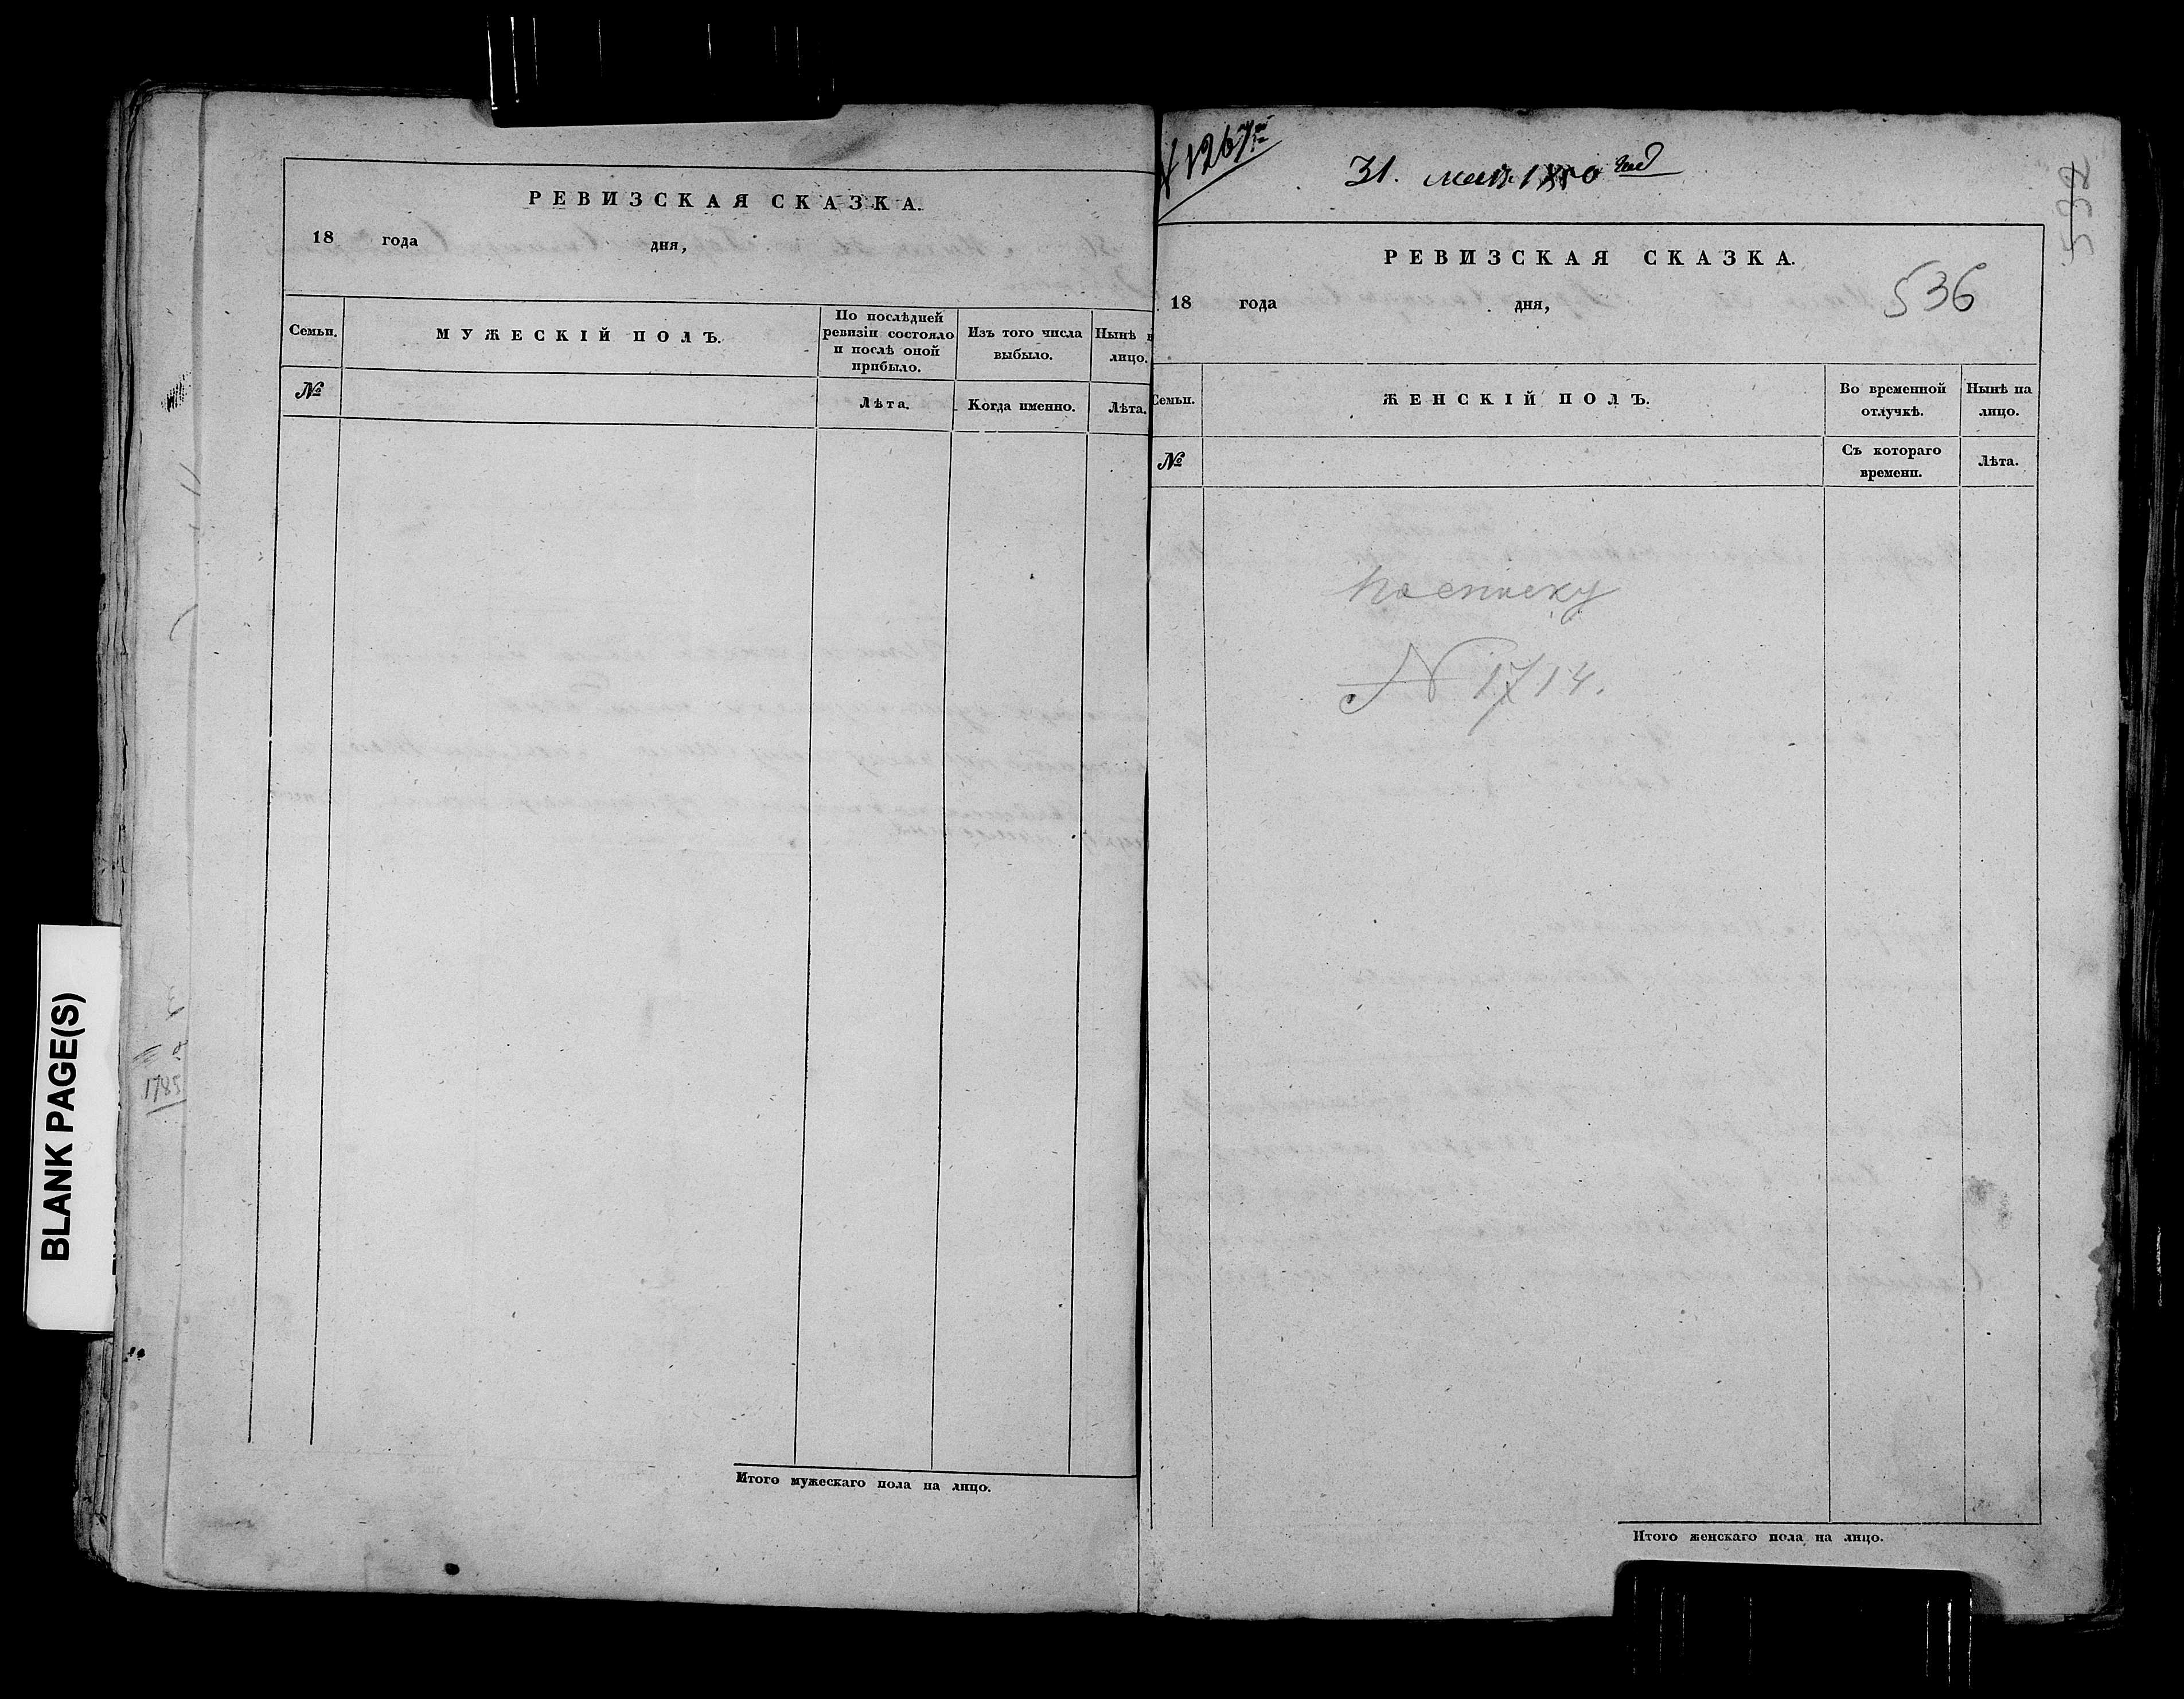 РЕВИЗСКАЯ СКАЗКА.
18 года дня,
Семьи. МУЖЕСКІЙ ПОЛЪ. По послѣдней ревизіи состояло и послѣ оной прибыло. Изъ того числа выбыло. Нынѣ н лицо.
№ Лѣта. Когда именно. Лѣта.
Итого мужескаго пола на лицо.
31. мая 1850
532
РЕВИЗСКАЯ СКАЗКА.
536
18 года дня,
Семьи. ЖЕНСКІЙ ПОЛЪ. Во временной отлучкѣ. Нынѣ на лицо.
№ Съ котораго времени. Лѣта.
По списку
N 1714.
Итого женскаго пола на лицо.
BLANK PAGE(S)
1785